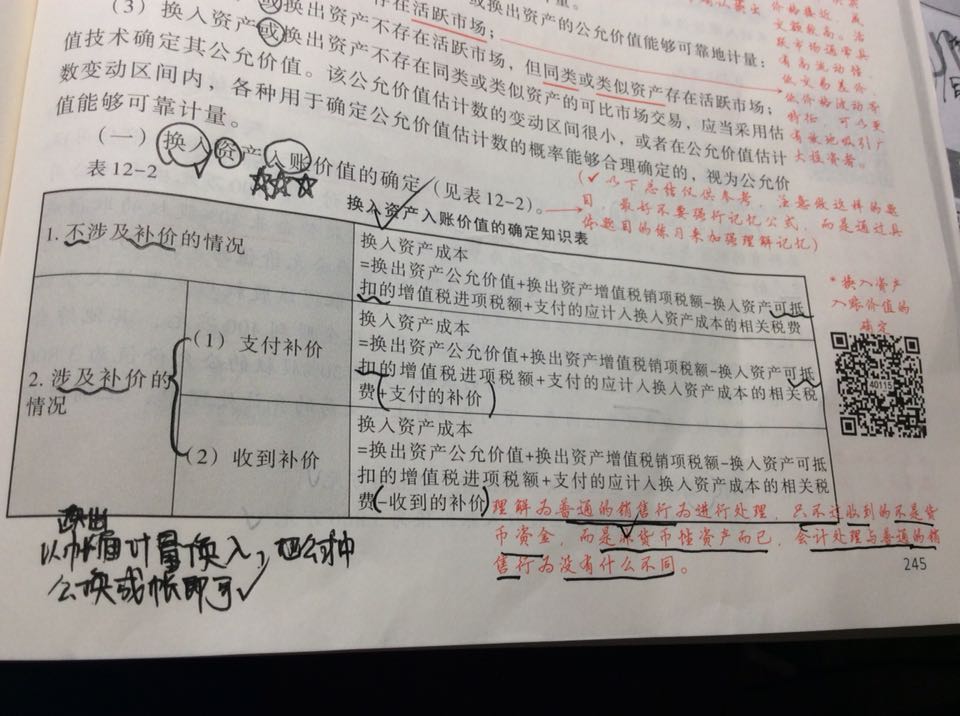 或换出资产的公允价值能够可靠地计量：
存在活跃市场；
（3）换入资产或换出资产不存在活跃市场，但同类或类似资产存在活跃市场；
换出资产不存在同类或类似资产的可比市场交易，应当采用估
值技术确定其公允价值。该公允价值估计数的变动区间很小，或者在公允价值估计
数变动区间内，各种用于确定公允价值估计数的概率能够合理确定的，视为公允价
值能够可靠计量。
价格接近，成
交额较高。活
跃市场通常具
有高流动性、
低交易差价、
低价格波动等
特征，可以更
有效地吸引广
大投资者。
（一）换入资产入账价值的确定（见表12-2）。
（✓以下总结仅供参考，注意做这样的题
目，最好不要强行记忆公式，而是通过具
体题目的练习来加强理解记忆）
表12-2
换入资产入账价值的确定知识表
1.不涉及补价的情况
换入资产成本
=换出资产公允价值+换出资产增值税销项税额-换入资产可抵
扣的增值税进项税额+支付的应计入换入资产成本的相关税费
2.涉及补价的
情况
（1）支付补价
换入资产成本
=换出资产公允价值+换出资产增值税销项税额-换入资产可抵
扣的增值税进项税额+支付的应计入换入资产成本的相关税
费+支付的补价
（2）收到补价
换入资产成本
=换出资产公允价值+换出资产增值税销项税额-换入资产可抵
扣的增值税进项税额+支付的应计入换入资产成本的相关税
费-收到的补价
*换入资产
入账价值的
确定
40115
理解为普通的销售行为进行处理，只不过收到的不是货
币资金，而是非货币性资产而已，会计处理与普通的销
售行为没有什么不同。
换出
计量换入，
公换成帐即可
245